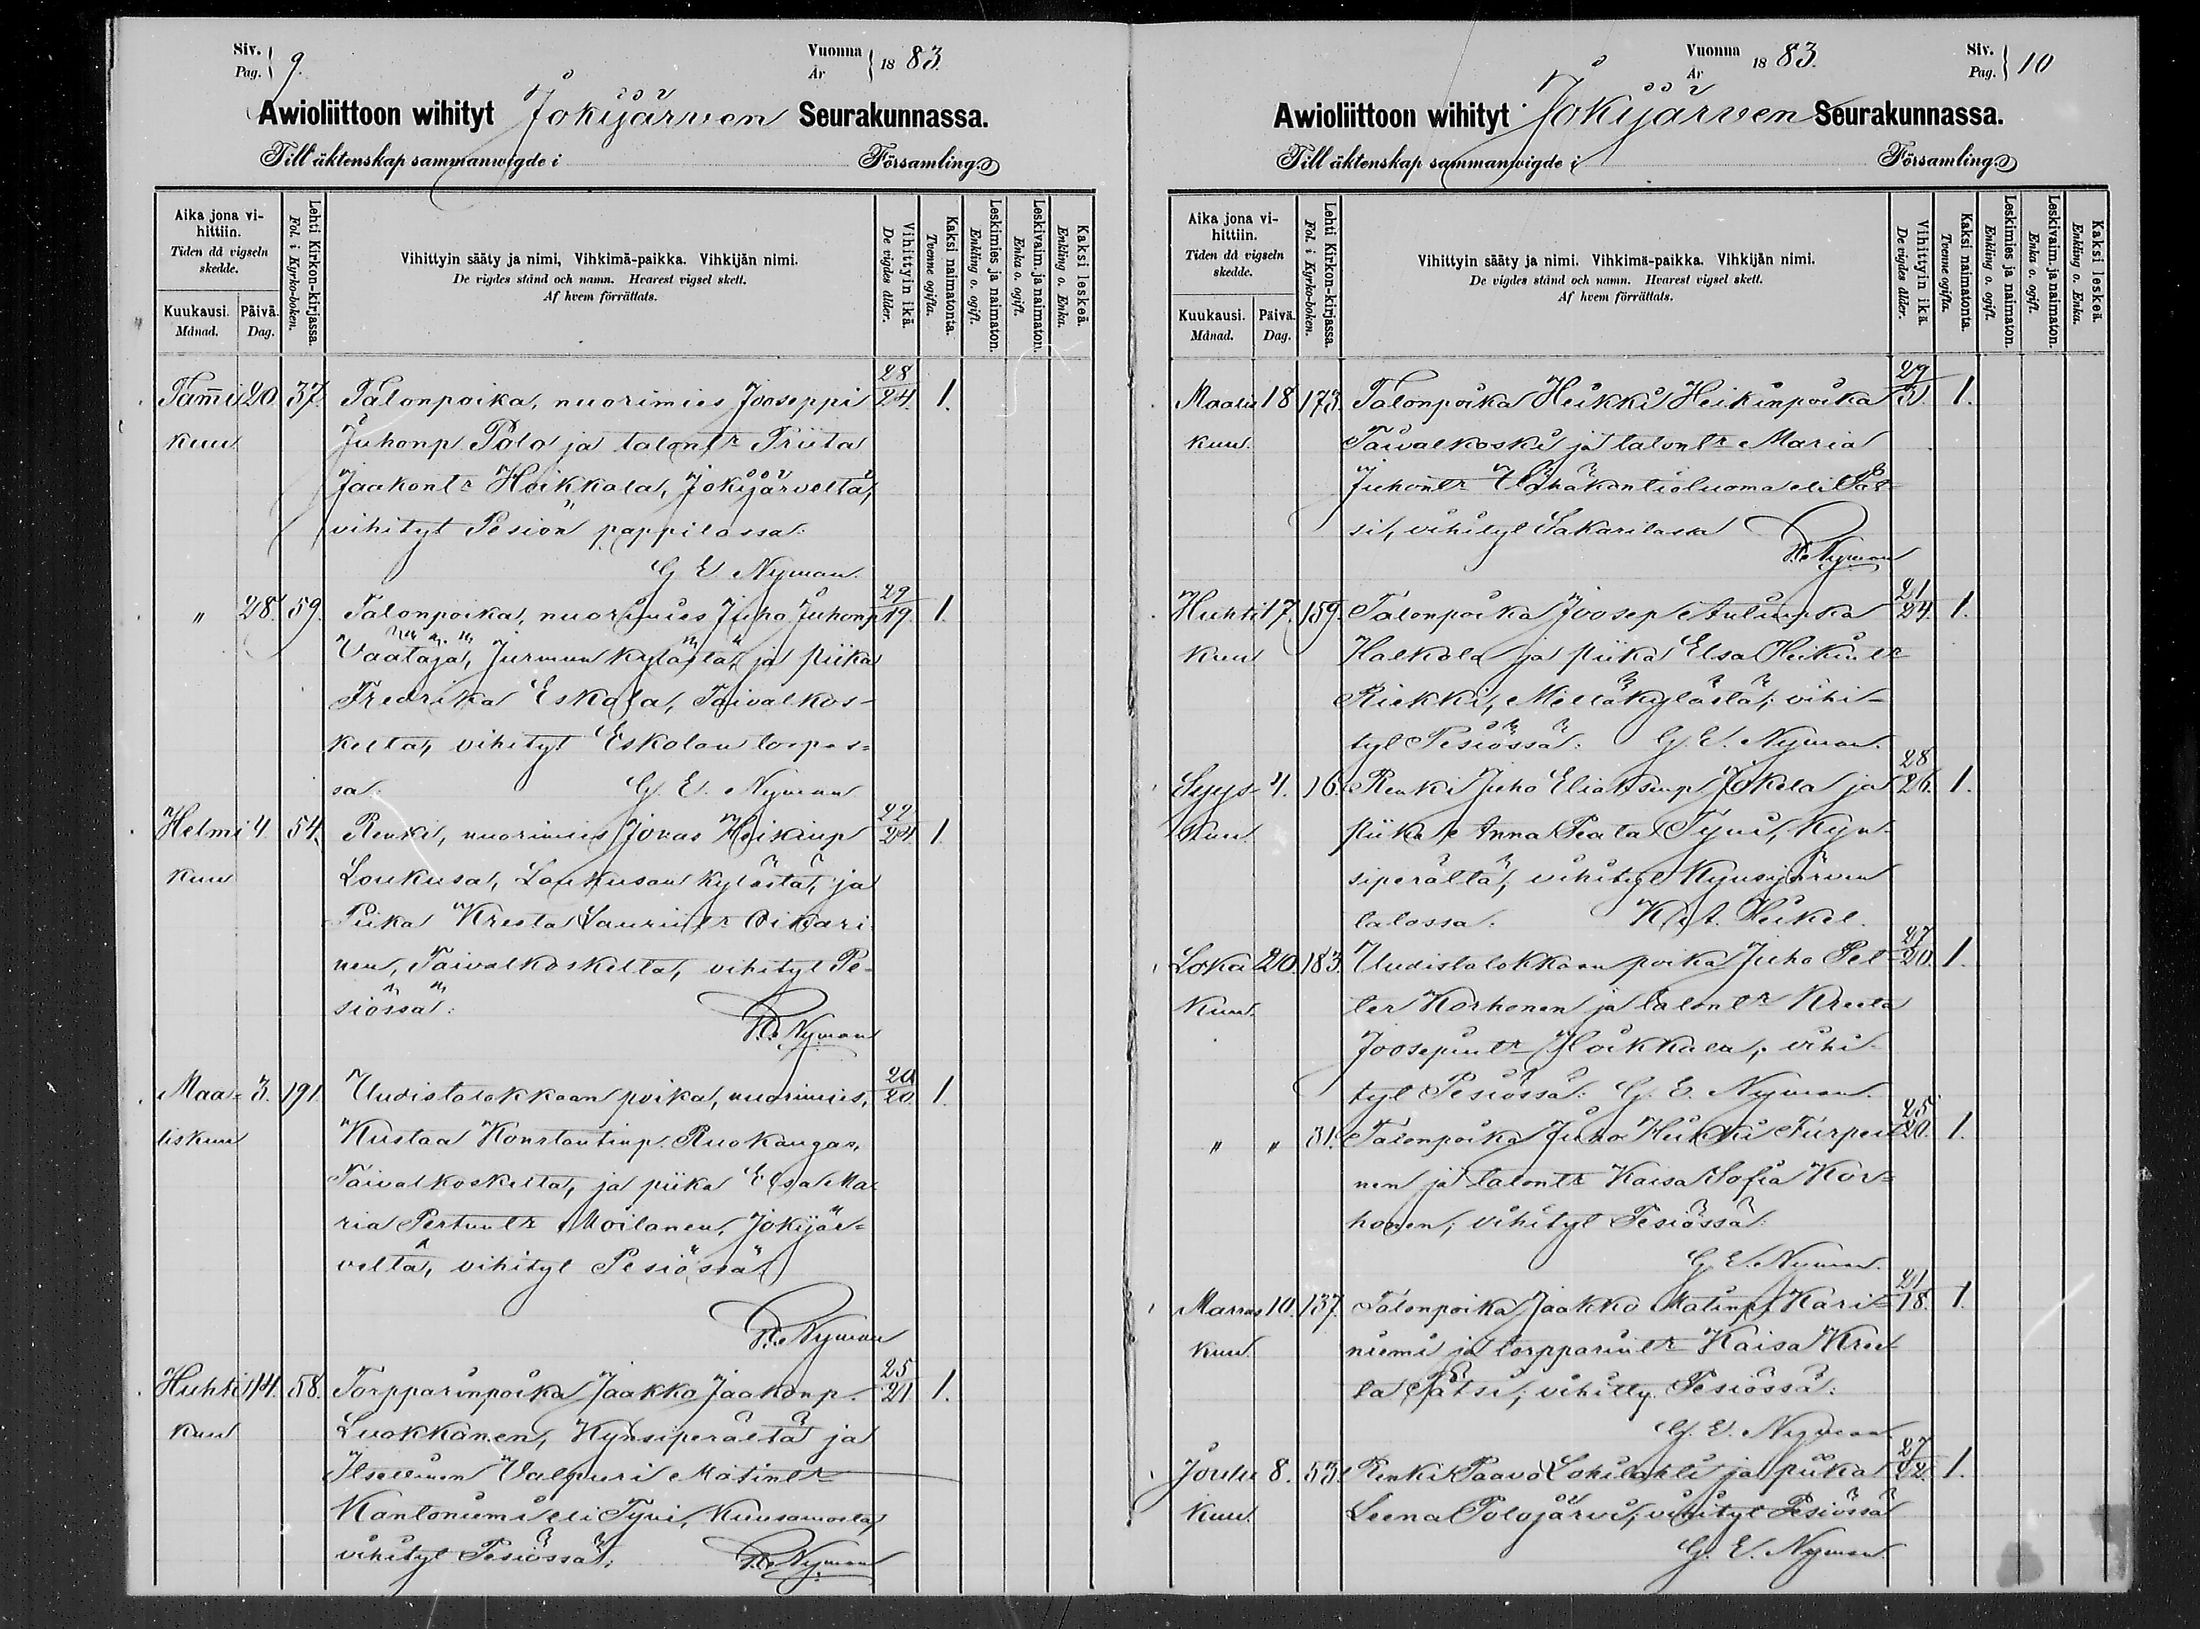 Siv.
Pag. 9.
Vuonna
År 1883.
Awioliittoon wihityt Jokijärven Seurakunnassa.
Till äktenskap sammanwigde i Församling.
Aika jona vi-
hittiin.
Tiden då vigseln
skedde.
Kuukausi.
Månad.
Päivä.
Dag.
Lehti Kirkon-kirjassa.
Fol. i Kyrko-boken.
Vihittyin sääty ja nimi, Vihkimä-paikka. Vihkijän nimi.
De vigdes stånd och namn. Hvarest vigsel skett.
Af hvem förrättats.
Vihittyin ikä.
De vigdes ålder.
Kaksi naimatonta.
Tvenne ogifta.
Leskimies ja naimaton.
Enkling o. ogift.
Leskivaim. ja naimaton.
Enka o. ogift.
Kaksi leskeä.
Enkling o. Enka.
28
Tammi 20 37. Talonpoika, nuorimies Jooseppi 24. 1.
kuu Juhonp Polo ja talontr Priita
Jaakontr Heikkala, Jokijärveltä,
vihityt Pesiön pappilassa.
G. E. Nyman.
29
" 28. 59. Talonpoika, nuorimies Juho Juhonp 19. 1.
Vaataja, Jurmun kylästä, ja piika
Fredrika Eskola, Taivalkos-
kelta, vihityt Eskolan torpas-
sa. G. E. Nyman
22
Helmi 4. 54. Renki, nuorimies Jonas Heikinp 24. 1.
kuu Loukusa, Loukusan kylästä, ja
Piika Kreeta Laurintr Oikari
nen, Taivalkoskelta, vihityt Pe-
siössä: Nyman
20
Maa- 3. 191 Uudistalokkaan poika, nuorimies, 20. 1.
liskuu Kustaa Konstantinp. Ruokangas,
Taivalkoskelta, ja piika Elsa Ma-
ria Pertuntr Moilanen, Jokijär-
veltä, vihityt Pesiössä
Nyman
25
Huhti 14. 58. Torpparinpoika Jaakko Jaakonp. 21 1.
kuu Luokkanen, Kynsiperältä ja
Itsellinen Valpuri Matintr
Kantoniemi eli Tyni, Kuusamosta,
vihityt Pesiössä; Nyman
Vuonna
År 1883.
Siv.
Pag. 10
Awioliittoon wihityt Jokijärven Seurakunnassa.
Till äktenskap sammanwigde i Församling.
Aika jona vi-
hittiin.
Tiden då vigseln
skedde.
Kuukausi.
Månad.
Päivä.
Dag.
Lehti Kirkon-kirjassa.
Fol. i Kyrko-boken.
Vihittyin sääty ja nimi. Vihkimä-paikka. Vihkijän nimi.
De vigdes stånd och namn. Hvarest vigsel skett.
Af hvem förrättats.
Vihittyin ikä.
De vigdes ålder.
Kaksi naimatonta.
Tvenne ogifta.
Leskimies ja naimaton.
Enkling o. ogift.
Leskivaim. ja naimaton.
Enka o. ogift.
Kaksi leskeä.
Enkling o. Enka.
29
Maalis 18 173. Talonpoika Heikki Heikinpoika 31. 1.
kuu. Taivalkoski ja talontr Maria
Juhontr eli Pät-
si, vihityt Sakarilassa
Nyman
21
Huhti 17. 159. Talonpoika Joosep Antinpka 24. 1.
kuu Halkola ja piika Elsa Heikintr
Riekki, Metsäkylästä; vihi-
tyt Pesiössä: G. E. Nyman.
28
Syys- 4. 16. Renki Juho Eliaksenp Jokela ja 26. 1.
kuu. piika Anna Peata Tyni, Kyn-
siperältä, vihityt Kynsijärven
talossa. K. A. Heikel.
27
Loka 20. 183. Uudistalokkaan poika Juho Pet- 20. 1.
kuu ter Korhonen ja talontr Kreeta
Joosepintr Hoikkala; vihi-
tyt Pesiössä: G. E. Nyman.
25
" " 31. Talonpoika Juho Heikki Turpei 20. 1.
nen ja talontr Kaisa Sofia Kor-
honen; vihityt Pesiössä:
G. E. Nyman.
21
Marras 10. 137. Talonpoika Jaakko Matinp. Kari- 18. 1.
kuu. niemi ja torpparintr Kaisa Kree
ta Pätsi; vihitty Pesiössä:
G. E. Nyman
27
Joulu 8. 53. Renki Paavo Lohilahti ja piika 22. 1.
kuu. Leena Polojärvi; vihityt Pesiössä
G. E. Nyman.